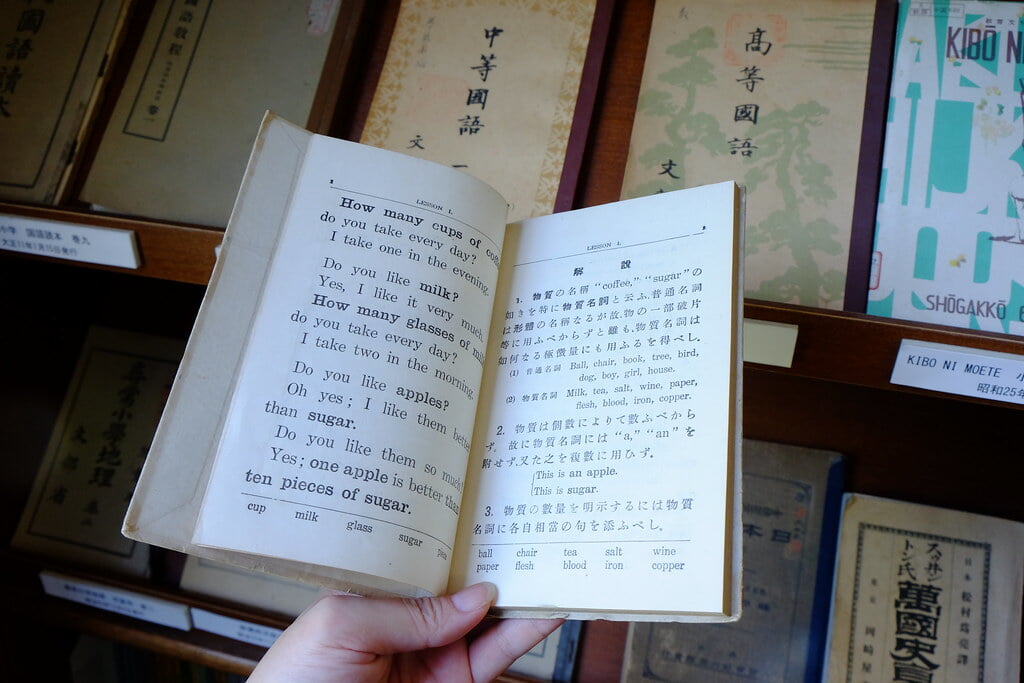 國語讀本
國語教程
卷一
中等國語
文
一
高等國語
文
KIBŌ N
SHŌGAKKŌ 6
小学 国語読本 巻九
大正11年1月15日発行
KIBO NI MOETE 小
昭和25年
LESSON 1.
How many cups of
do you take every day?
I take one in the evening.
Do you like milk?
Yes, I like it very much.
How many glasses of
do you take every day?
I take two in the morning.
Do you like apples?
Oh yes; I like them
than sugar.
Do you like them so much?
Yes; one apple is better than
ten pieces of sugar.
cup milk glass sugar
LESSON 1.
解說
1. 物質の名稱 “coffee,” “sugar” の
如きを特に物質名詞と云ふ、普通名詞
は形體の名稱なるが故、物の一部破片
等に用ふべからずと雖も、物質名詞は
如何なる極微量にも用ふるを得べし。
(1) 普通名詞 Ball, chair, book, tree, bird,
dog, boy, girl, house.
(2) 物質名詞 Milk, tea, salt, wine, paper,
flesh, blood, iron, copper.
2. 物質は個數によりて數ふべから
ず。故に物質名詞には “a,” “an” を
附せず、又た之を複數に用ひず。
This is an apple.
This is sugar.
3. 物質の數量を明示するには物質
名詞に各自相當の句を添ふべし。
ball chair tea salt wine
paper flesh blood iron copper
小學地理 卷二
文部省
日本
スヰントン氏
萬國史
日本 松村爲亮譯
東京 岡崎屋